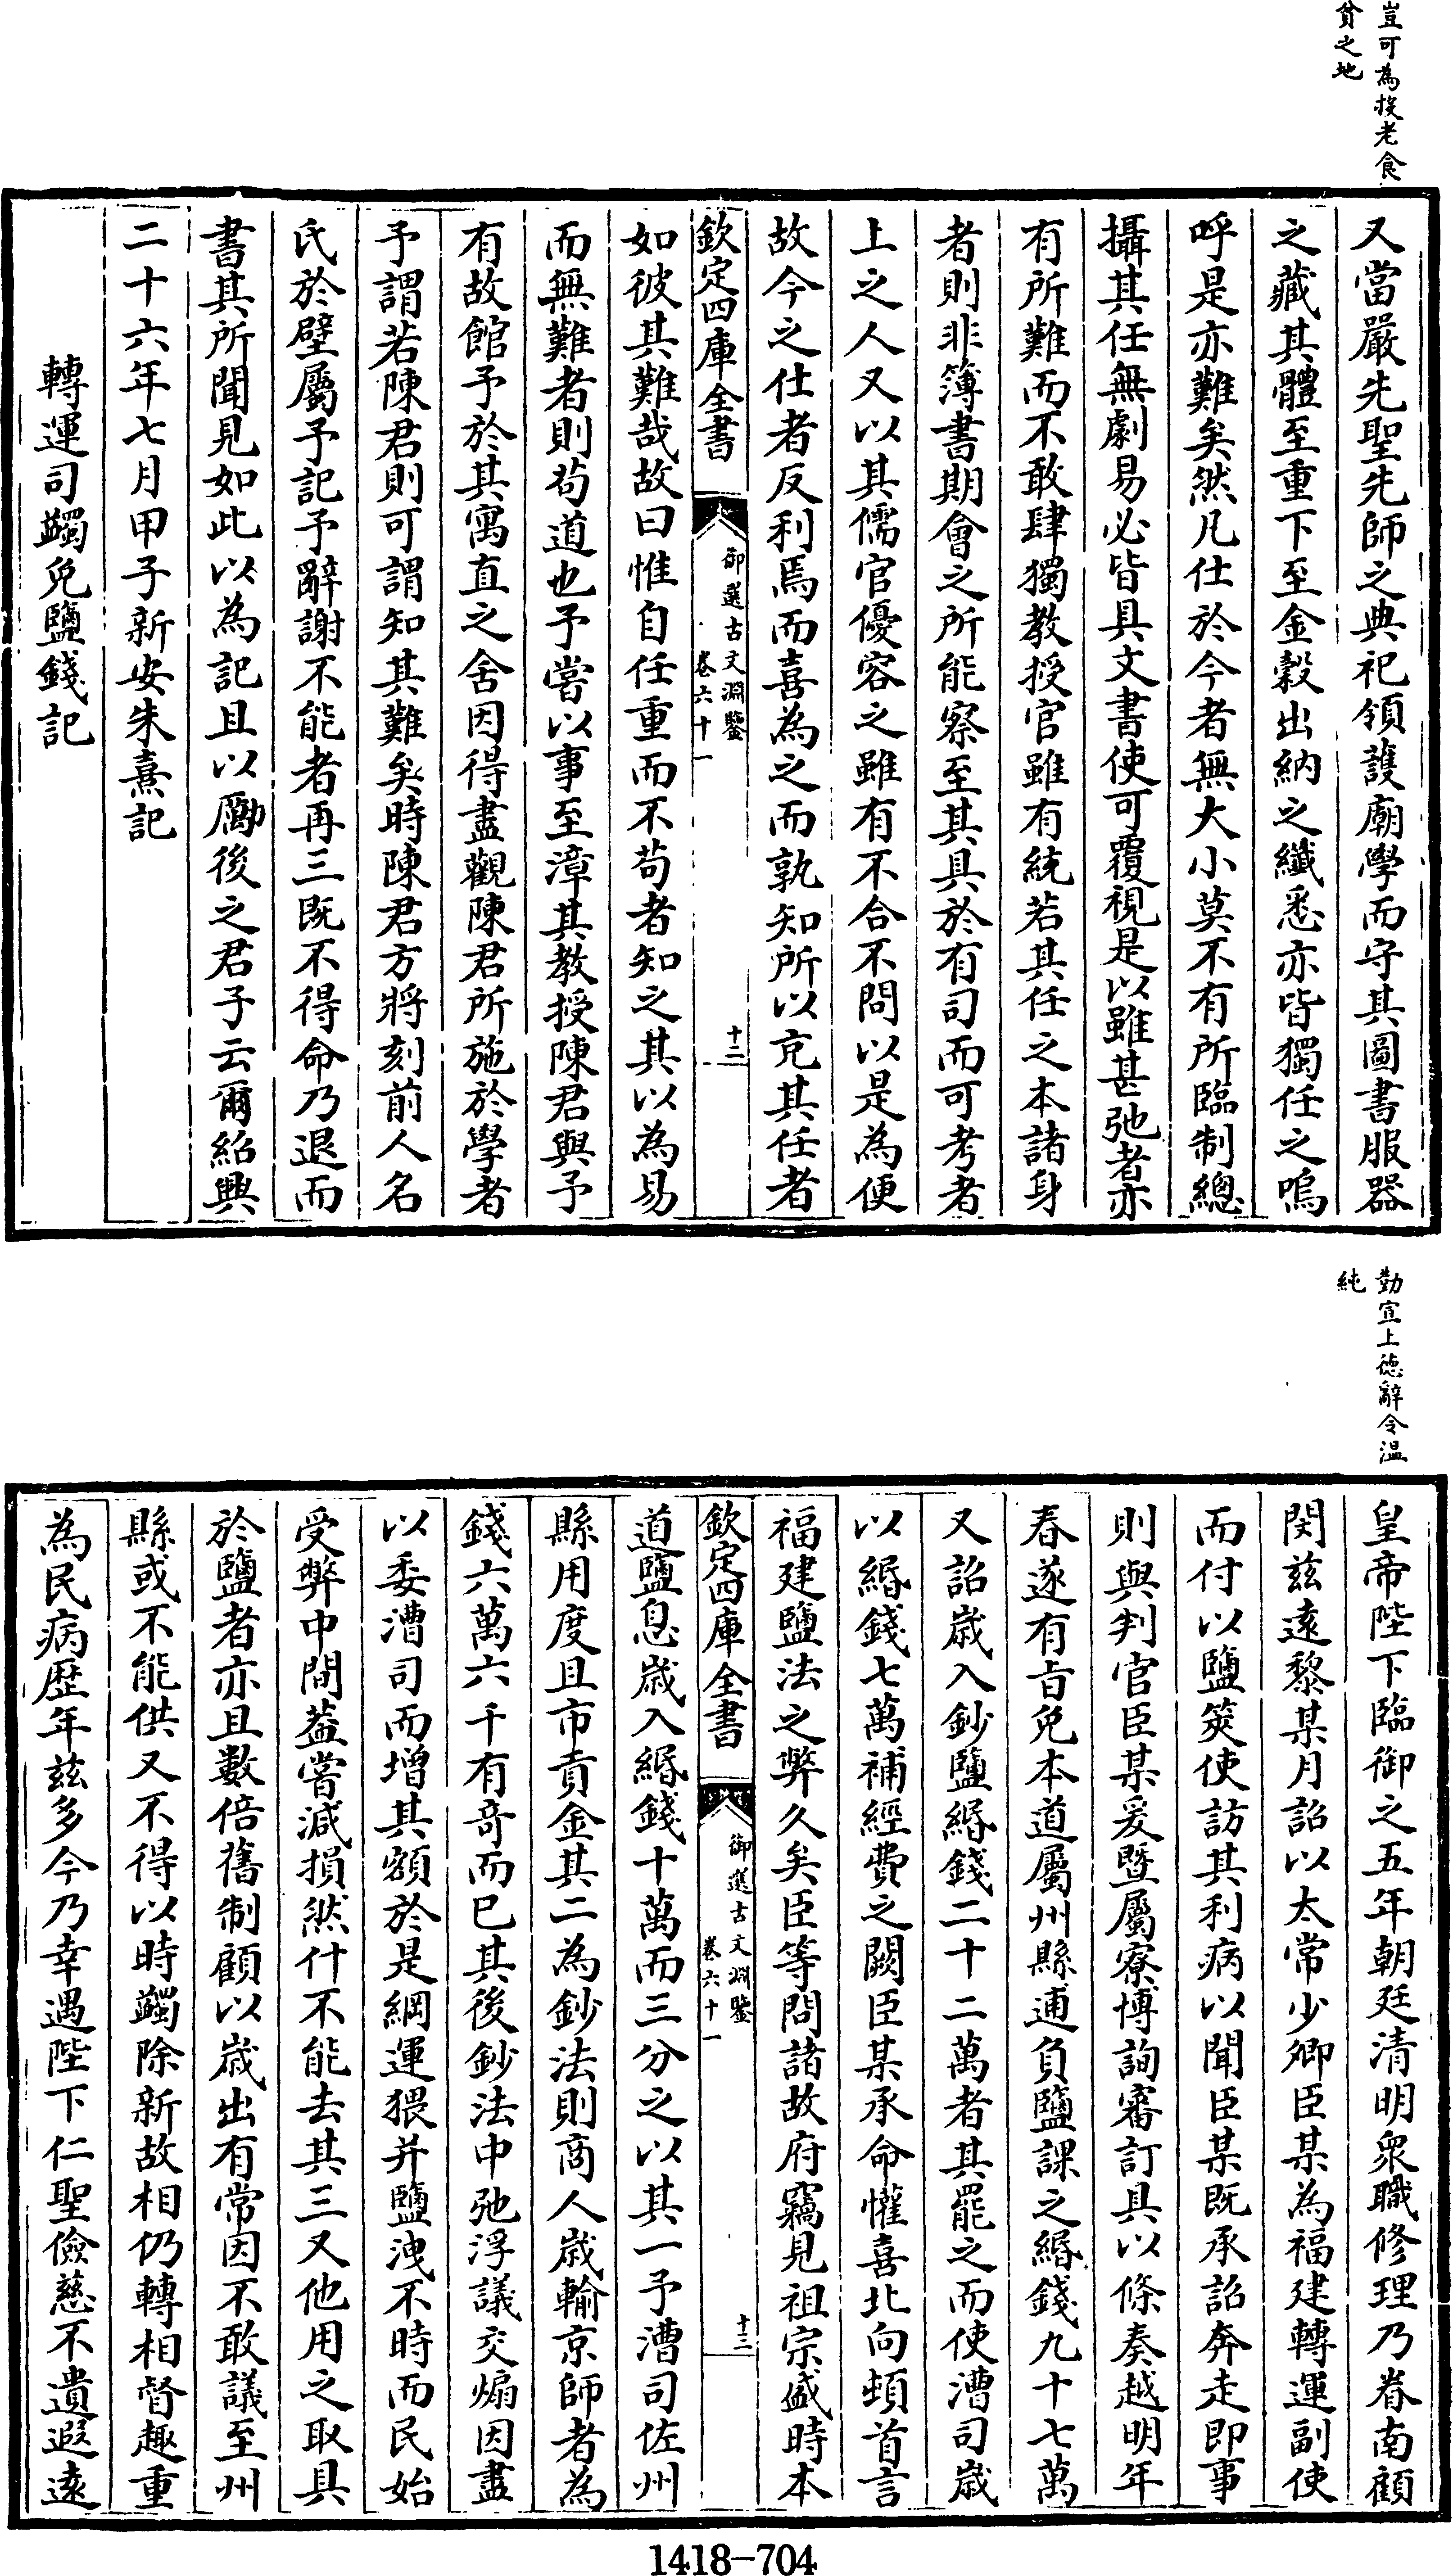 豈可為投老食
貧之地
又當嚴先聖先師之典祀領護廟學而守其圖書服器
之藏其體至重下至金穀出納之纖悉亦皆獨任之嗚
呼是亦難矣然凡仕於今者無大小莫不有所臨制總
攝其任無劇易必皆具文書使可覆視是以雖甚弛者亦
有所難而不敢肆獨教授官雖有統若其任之本諸身
者則非簿書期會之所能察至其具於有司而可考者
上之人又以其儒官優容之雖有不合不問以是為便
故今之仕者反利焉而喜為之而孰知所以充其任者
欽定四庫全書
御選古文淵鑒
卷六十一
十二
如彼其難哉故曰惟自任重而不苟者知之其以為易
而無難者則苟道也予嘗以事至漳其教授陳君與予
有故館予於其寓直之舍因得盡觀陳君所施於學者
予謂若陳君則可謂知其難矣時陳君方將刻前人名
氏於壁屬予記予辭謝不能者再三既不得命乃退而
書其所聞見如此以為記且以勵後之君子云爾紹興
二十六年七月甲子新安朱熹記
轉運司蠲免鹽錢記
勤宣上德辭令温
純
皇帝陛下臨御之五年朝廷清明衆職修理乃眷南顧
閔兹遠黎某月詔以太常少卿臣某為福建轉運副使
而付以鹽筴使訪其利病以聞臣某既承詔奔走即事
則與判官臣某爰暨屬寮博詢審訂具以條奏越明年
春遂有旨免本道屬州縣逋負鹽課之緡錢九十七萬
又詔歲入鈔鹽緡錢二十二萬者其罷之而使漕司歲
以緡錢七萬補經費之闕臣某承命懽喜北向頓首言
福建鹽法之弊久矣臣等問諸故府竊見祖宗盛時本
欽定四庫全書
御選古文淵鑒
卷六十一
十三
道鹽息歲入緡錢十萬而三分之以其一予漕司佐州
縣用度且市貢金其二為鈔法則商人歲輸京師者為
錢六萬六千有奇而已其後鈔法中弛浮議交煽因盡
以委漕司而增其額於是綱運猥并鹽洩不時而民始
受弊中間蓋嘗減損然什不能去其三又他用之取具
於鹽者亦且數倍舊制顧以歲出有常因不敢議至州
縣或不能供又不得以時蠲除新故相仍轉相督趣重
為民病歷年兹多今乃幸遇陛下仁聖儉慈不遺遐遠
1418-704